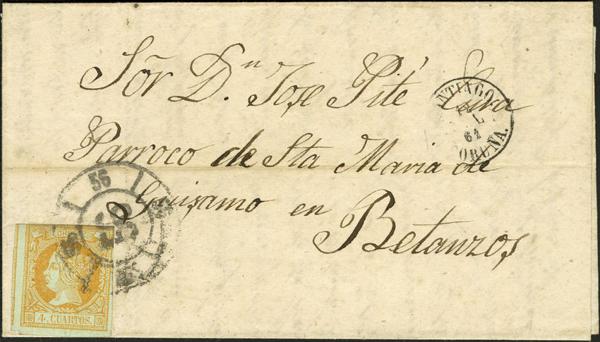 Sõr D.ⁿ Jose Pité Cura
Parroco de Sta Maria de
Guisamo en
Betanzos
NTIAGO
61
ORUÑA.
56
4 CUARTOS.